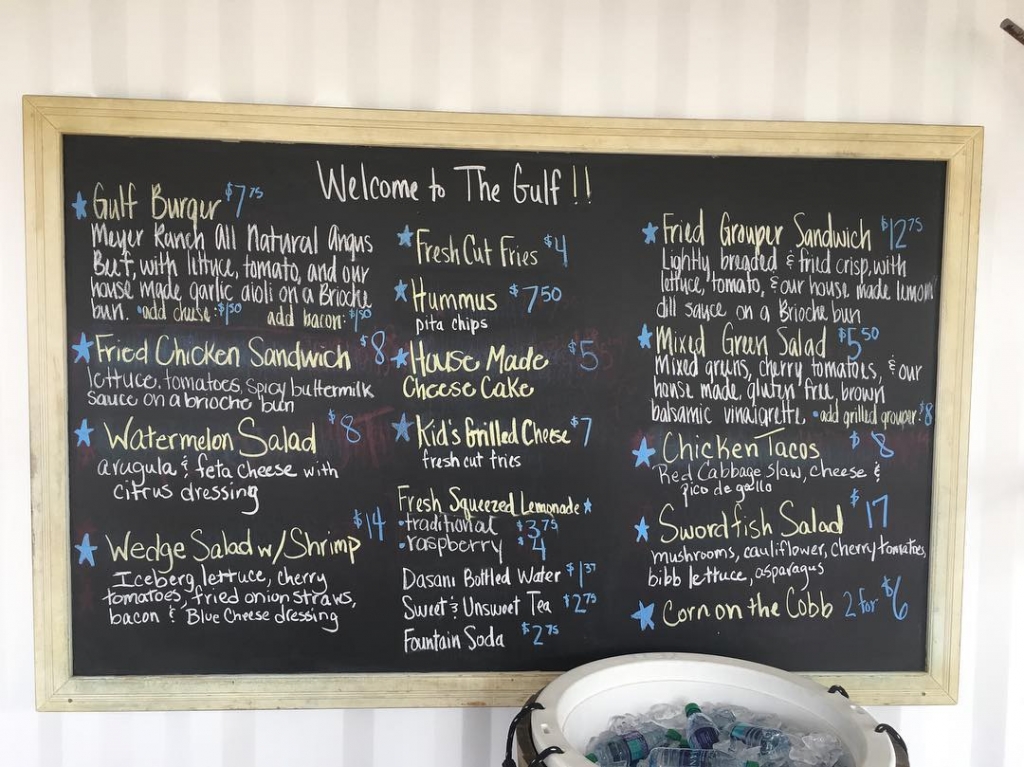 Welcome to The Gulf !!
Gulf Burger $7.75
Meyer Ranch All Natural Angus
Beef, with lettuce, tomato, and our
house made garlic aioli on a Brioche
bun. • add cheese: $1.50 add bacon: $1.50
Fried Chicken Sandwich $8
lettuce, tomatoes, spicy buttermilk
sauce on a brioche bun
Watermelon Salad $8
arugula & feta cheese with
citrus dressing
Wedge Salad w/Shrimp $14
Iceberg lettuce, cherry
tomatoes, fried onion straws,
bacon & Blue Cheese dressing
Fresh Cut Fries $4
Hummus $7.50
pita chips
House Made $5
Cheese Cake
Kid's Grilled Cheese $7
fresh cut fries
Fresh Squeezed Lemonade
• traditional $3.75
• raspberry $4
Dasani Bottled Water $1.37
Sweet & Unsweet Tea $2.75
Fountain Soda $2.75
Fried Grouper Sandwich $12.75
Lightly, breaded & fried crisp, with
lettuce, tomato, & our house made lemon
dill sauce on a Brioche bun
Mixed Green Salad $5.50
Mixed greens, cherry tomatoes, & our
house made, gluten free brown
balsamic vinaigrette. • add grilled grouper: $8
Chicken Tacos $8
Red Cabbage slaw, cheese &
pico de gallo
Swordfish Salad $17
mushrooms, cauliflower, cherry tomatoes,
bibb lettuce, asparagus
Corn on the Cobb 2 for $6